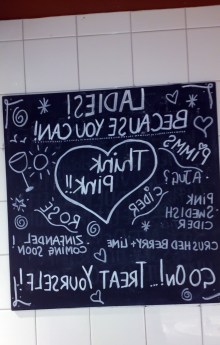 LADIES!
BECAUSE YOU CAN!
PIMMS
A JUG?
Think
Pink!!
CIDER
ROSÉ
PINK
SWEDISH
CIDER
ZINFANDEL!
COMING SOON
CRUSHED BERRY + LIME
GO ON!... TREAT YOURSELF!